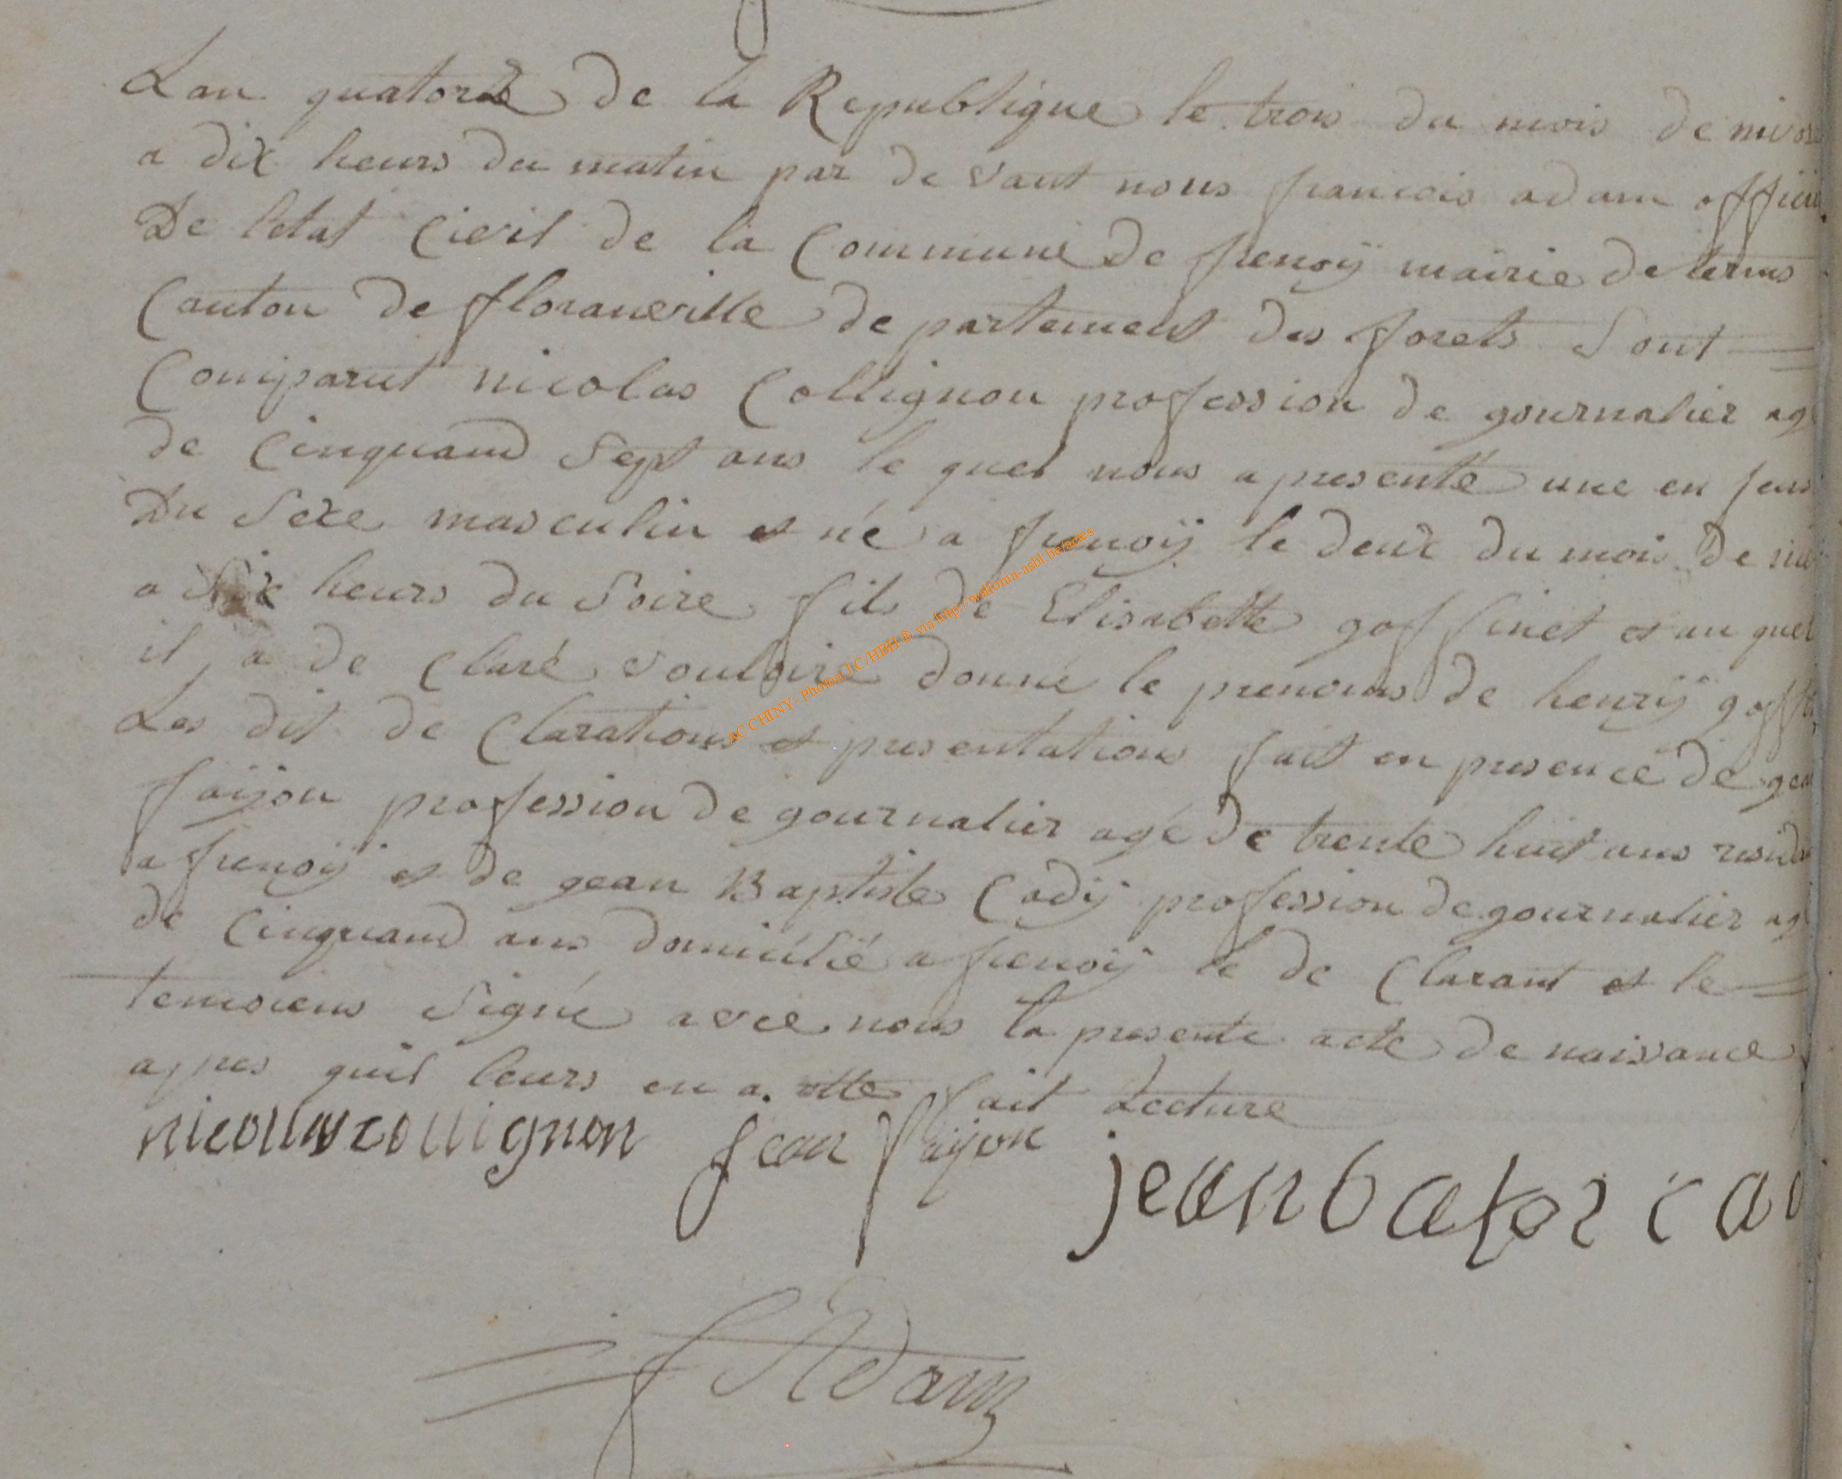 Lan quatorze de la Republique le trois du mois de nivos
a dix heurs du matin par de vant nous francois adam offici
De letat Cievil de la Commune de frenoÿ mairie de termes
Canton de floranville de partement des forets Sont
Comparut nicolas Collignon profession de gournalier ag
de Cinquand Sept ans le quel nous a presenté une en fans
Du Sexe masculin et né a frenoÿ le deux du mois de niv
a Six heurs du Soire fils de Elisabette goffinet et au quel
il a de Claré vouloire donné le prenoms de henrÿ goffi
Les dit de Clarations et presentations fait en presence de gea
faÿon profession de gournalier agé de trente huit ans resid
a frenoÿ et de gean Baptiste Cadÿ profession de gournalier ag
de Cinquand ans domicilié a frenoÿ le de Clarant et le
temoiens Signé avee nous la presente acte de naissance
apres quil leurs en a fait Lecture
nicollas collignon jean faÿon
jean ca
f Adam
AC CHINY - Photo via http://wallonia-asbl.be